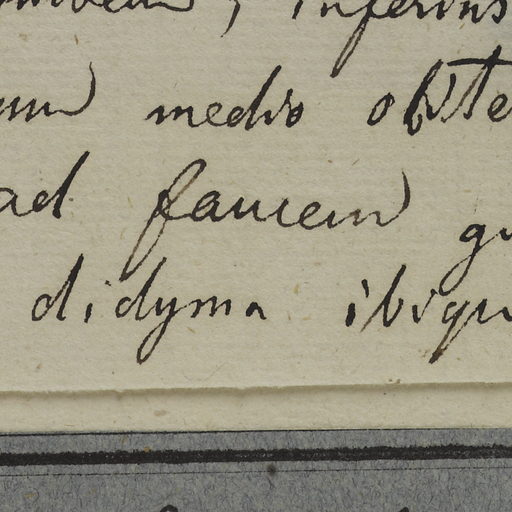 inferius
medio obte
ad faucem gu
didyma ibiqu